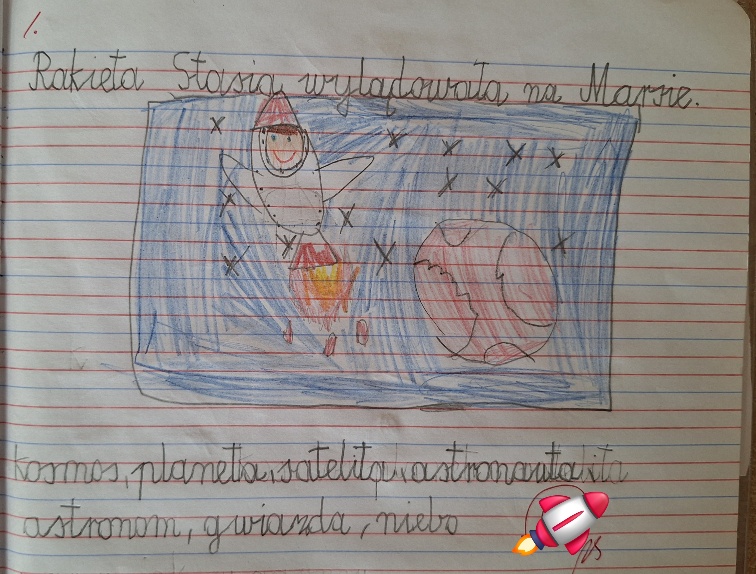 1.
Rakieta Stasia wylądowała na Marsie.
kosmos, planeta, satelita, astronauta
astronom, gwiazda, niebo